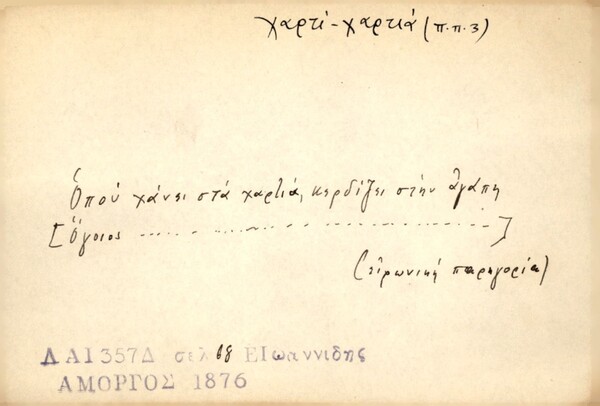 χαρτί - χαρτιά (π.π.3)
Ὁποὺ χάνει στὰ χαρτιά, κερδίζει στὴν ἀγάπη
[Ὅγοιος ... ]
(εἰρωνική παρηγορία)
ΔΑΙ357Δ σελ 68 ΕΙωαννιδης
ΑΜΟΡΓΟΣ 1876